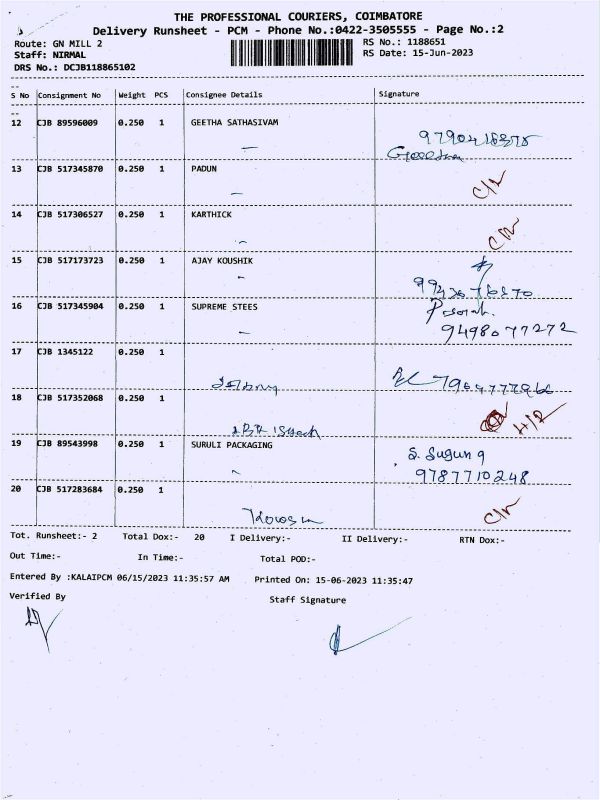 THE PROFESSIONAL COURIERS, COIMBATORE
Delivery Runsheet - PCM - Phone No.:0422-3505555 - Page No.:2
Route: GN MILL 2 RS No.: 1188651
Staff: NIRMAL RS Date: 15-Jun-2023
DRS No.: DCJB118865102
S No Consignment No Weight PCS Consignee Details Signature
12 CJB 89596009 0.250 1 GEETHA SATHASIVAM
13 CJB 517345870 0.250 1 PADUN
C/R
14 CJB 517306527 0.250 1 KARTHICK
C/R
15 CJB 517173723 0.250 1 AJAY KOUSHIK
16 CJB 517345904 0.250 1 SUPREME STEES
9498077272
17 CJB 1345122 0.250 1
18 CJB 517352068 0.250 1
19 CJB 89543998 0.250 1 SURULI PACKAGING
S. Suguna
9787710248
20 CJB 517283684 0.250 1
C/R
Tot. Runsheet:- 2 Total Dox:- 20 I Delivery:- II Delivery:- RTN Dox:-
Out Time:- In Time:- Total POD:-
Entered By :KALAIPCM 06/15/2023 11:35:57 AM Printed On: 15-06-2023 11:35:47
Verified By Staff Signature